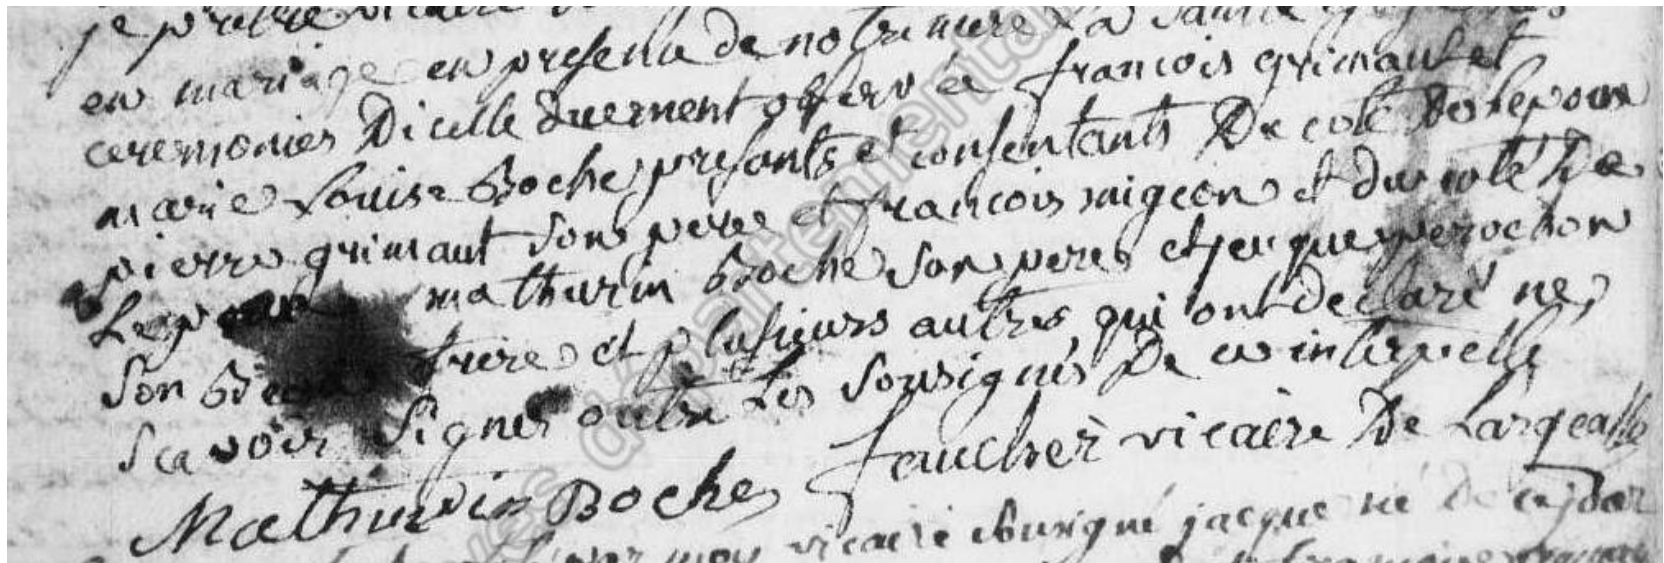 je pretre vicaire
en mariage en presence de notre mere la sainte
ceremonies Dicelle duement observée francois grimaut et
marie Louise Boche presents et consentants De coté De lepoux
pierre grimaut son pere et francois migeon et du coté De
Lepouse mathurin Boche son pere et jacque perochon
son Beau frere et plusieurs autres qui ont declaré ne
scavoir signer outre Les sousignés De ce interpellé
Mathurin Boche faucher vicaire De Largeasse
par moy vicaire sousigné jacque né de